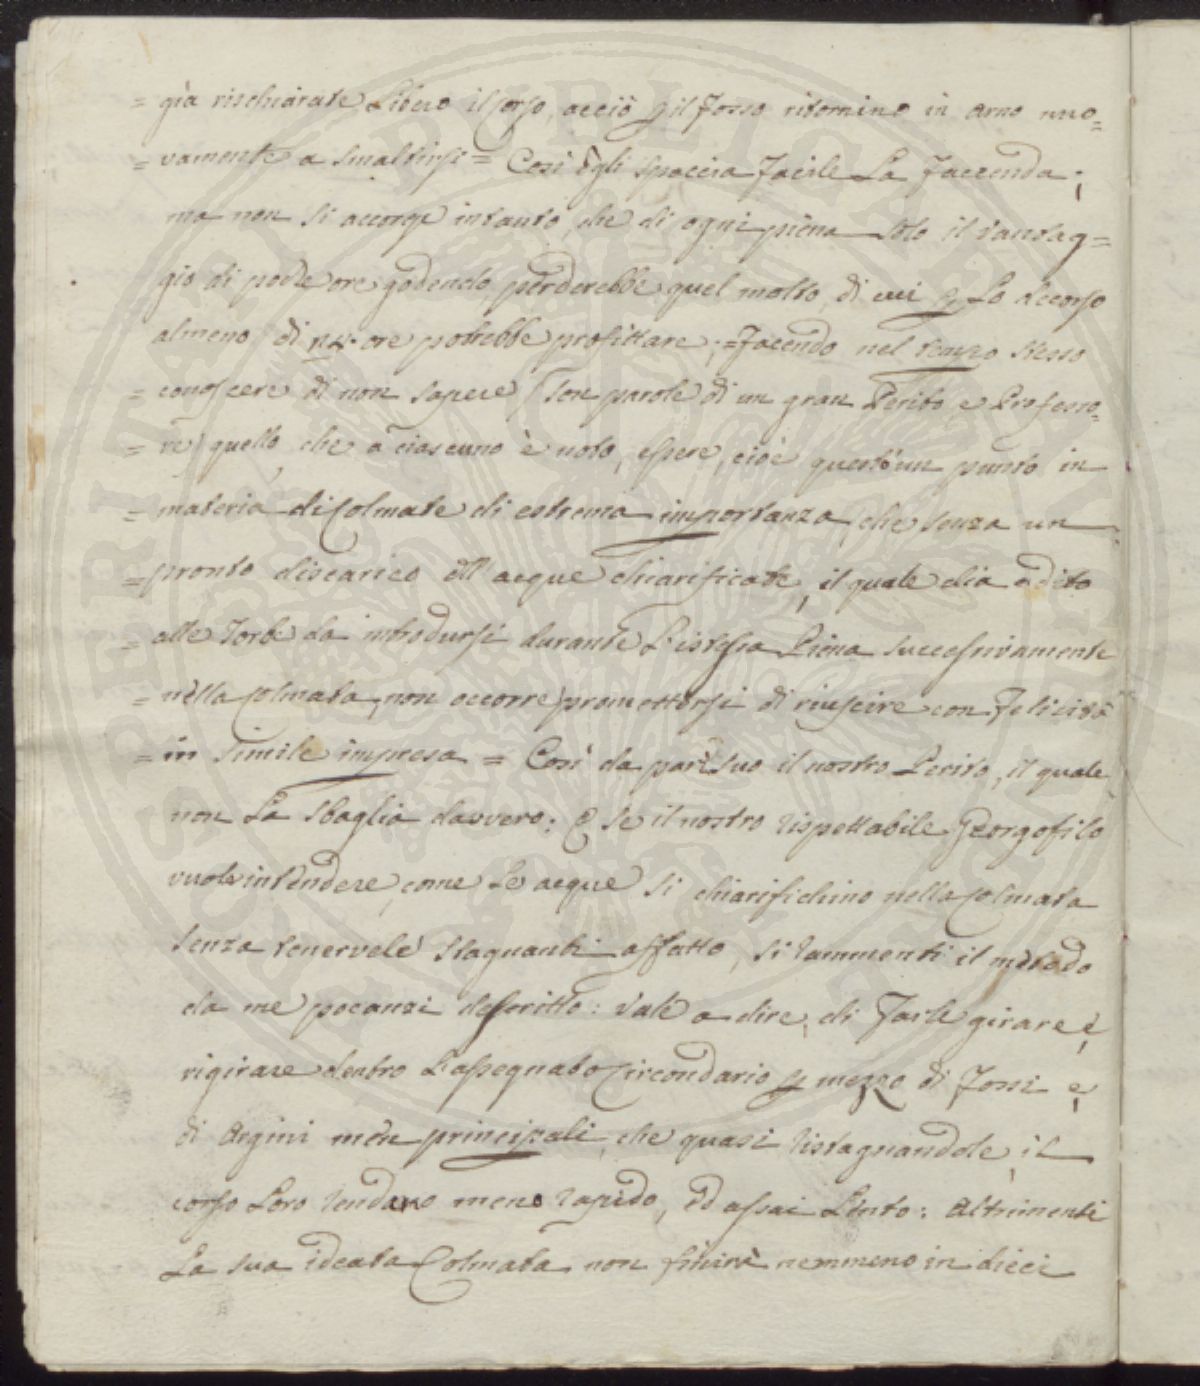 = già rischiarate Libero il corso, acciò p il Fosso ritornino in Arno nuo=
= vamente a smaltirsi = Così Egli spaccia facile La faccenda;
ma non si accorge intanto, che di ogni piena solo il vantag=
gio di poche ore godendo, perderebbe quel molto, di cui p Lo decorso
almeno di ore potrebbe profittare; = Facendo nel tempo stesso
= conoscere di non sapere (son parole di un gran Perito e Professo=
= re) quello, che a ciascuno è noto, essere, cioè questo un punto in
= materia di Colmate di estrema importanza, che senza un
= pronto discarico dell' acque chiarificate, il quale dia adito
= alle Torbe da introdursi durante L'istessa Piena successivamente
= nella Colmata, non occorre promettersi di riuscire con felicità
= in simile impresa = Così da pari suo il nostro Perito, il quale
non La sbaglia davvero: E se il nostro rispettabile Georgofilo
vuole intendere, come Le acque si chiarifichino nella Colmata
senza tenervele stagnanti affatto, si rammenti il metodo
da me pocanzi descritto: vale a dire, di farle girare, e
rigirare dentro L'assegnato Circondario p mezzo di Fossi e
di Argini men principali, che quasi ristagnandole, il
corso Loro rendano meno rapido, ed assai Lento: Altrimenti
La sua ideata Colmata non finirà nemmeno in dieci
SPERITAS PUBLICA